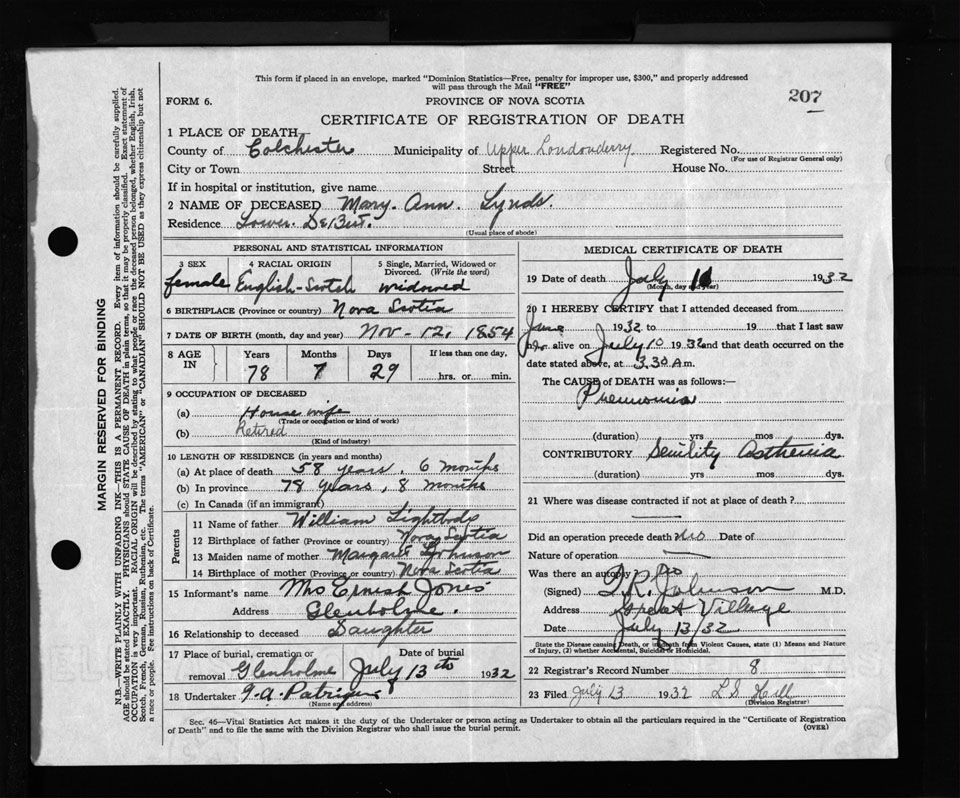 This form if placed in an envelope, marked "Dominion Statistics—Free, penalty for improper use, $300," and properly addressed
will pass through the Mail "FREE"
FORM 6.
PROVINCE OF NOVA SCOTIA
207
CERTIFICATE OF REGISTRATION OF DEATH
1 PLACE OF DEATH
County of Colchester Municipality of Upper Londonderry Registered No.
(For use of Registrar General only)
City or Town Street House No.
If in hospital or institution, give name
2 NAME OF DECEASED Mary Ann Lynds.
Residence Lower DeBert.
(Usual place of abode)
PERSONAL AND STATISTICAL INFORMATION
3 SEX 4 RACIAL ORIGIN 5 Single, Married, Widowed or Divorced. (Write the word)
female English-Scotch widowed
6 BIRTHPLACE (Province or country) Nova Scotia
7 DATE OF BIRTH (month, day and year) Nov - 12, 1854
8 AGE IN Years Months Days If less than one day,
78 7 29 hrs. or min.
9 OCCUPATION OF DECEASED
(a) House wife
(Trade or occupation or kind of work)
(b) Retired
(Kind of industry)
10 LENGTH OF RESIDENCE (in years and months)
(a) At place of death 58 years, 6 months
(b) In province 78 years, 8 months
(c) In Canada (if an immigrant)
Parents
11 Name of father William Lightbody
12 Birthplace of father (Province or country) Nova Scotia
13 Maiden name of mother Margaret Johnson
14 Birthplace of mother (Province or country) Nova Scotia
15 Informant's name Mrs Ernest Jones
Address Glenholme.
16 Relationship to deceased Daughter
17 Place of burial, cremation or removal Date of burial
Glenholme July 13th 1932
18 Undertaker
(Name and address)
MEDICAL CERTIFICATE OF DEATH
19 Date of death July 11 1932
(Month, day and year)
20 I HEREBY CERTIFY that I attended deceased from
June 1932 to 19 that I last saw
her alive on July 10 1932 and that death occurred on the
date stated above, at 3.30 A m.
The CAUSE of DEATH was as follows:—
Pneumonia
(duration) yrs mos dys.
CONTRIBUTORY Senility Asthenia
(duration) yrs mos dys.
21 Where was disease contracted if not at place of death?
Did an operation precede death No Date of
Nature of operation
Was there an autopsy No
(Signed) T.R. Johnson M.D.
Address Great Village
Date July 13/32
State the Disease causing Death, or in Deaths from Violent Causes, state (1) Means and Nature
of Injury, (2) whether Accidental, Suicidal or Homicidal.
22 Registrar's Record Number 8
23 Filed July 13 1932 L S Hill
(Division Registrar)
Sec. 46—Vital Statistics Act makes it the duty of the Undertaker or person acting as Undertaker to obtain all the particulars required in the "Certificate of Registration
of Death" and to file the same with the Division Registrar who shall issue the burial permit. (OVER)
MARGIN RESERVED FOR BINDING
N.B.—WRITE PLAINLY WITH UNFADING INK—THIS IS A PERMANENT RECORD. Every item of information should be carefully supplied.
AGE should be stated EXACTLY. PHYSICIANS should STATE CAUSE OF DEATH in plain terms, so that it may be properly classified. Exact statement of
OCCUPATION is very important. RACIAL ORIGIN will be described by stating to what people or race the deceased person belonged, whether English, Irish,
Scotch, French, German, Russian, Ruthenian, etc. The terms "AMERICAN" or "CANADIAN" SHOULD NOT BE USED as they express citizenship but not
a race or people. See instructions on back of Certificate.